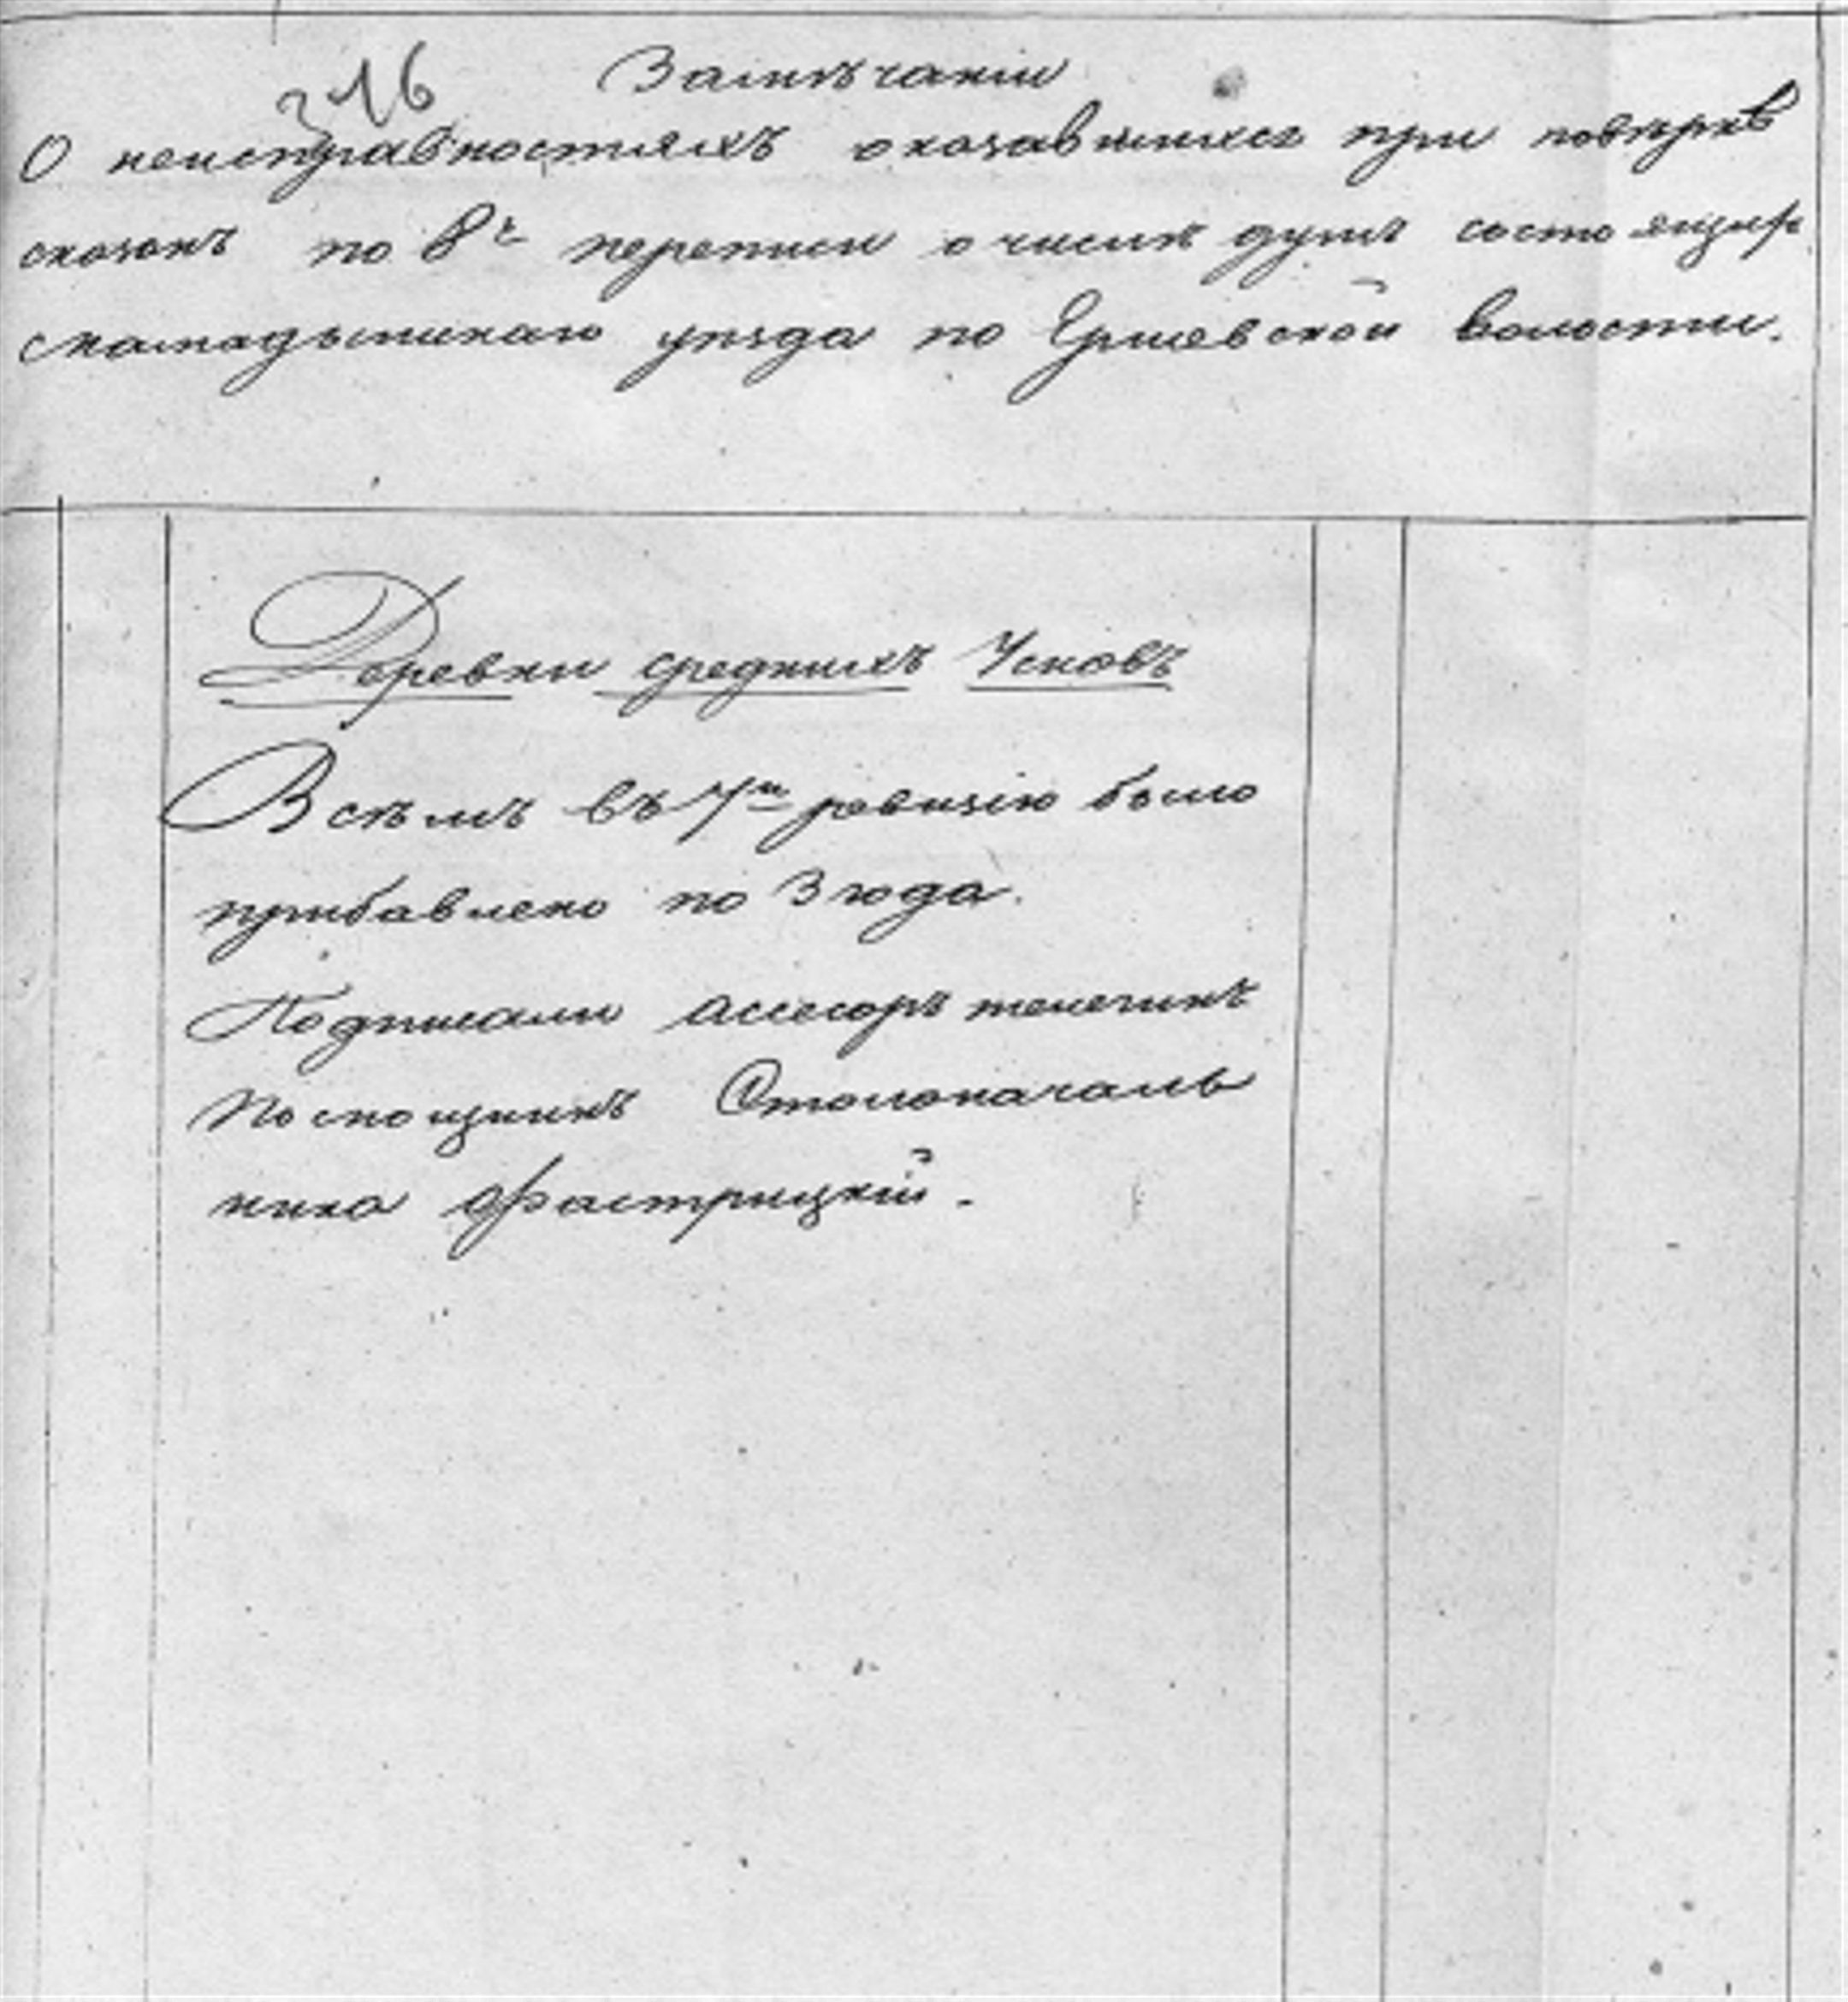 316
Замѣчаніи
О неисправностяхъ оказавшихся при повѣркѣ
сказокъ по 8й переписи о числѣ душъ состоящих
смамадышскаго уѣзда по Ершевской волости.
Деревни среднихъ Усковъ
Всѣмъ въ 7ю ревизію было
прибавлено по 3 года.
Подписали ассесоръ телегинъ
Помощникъ Столоначаль
ника Фастрицкій.